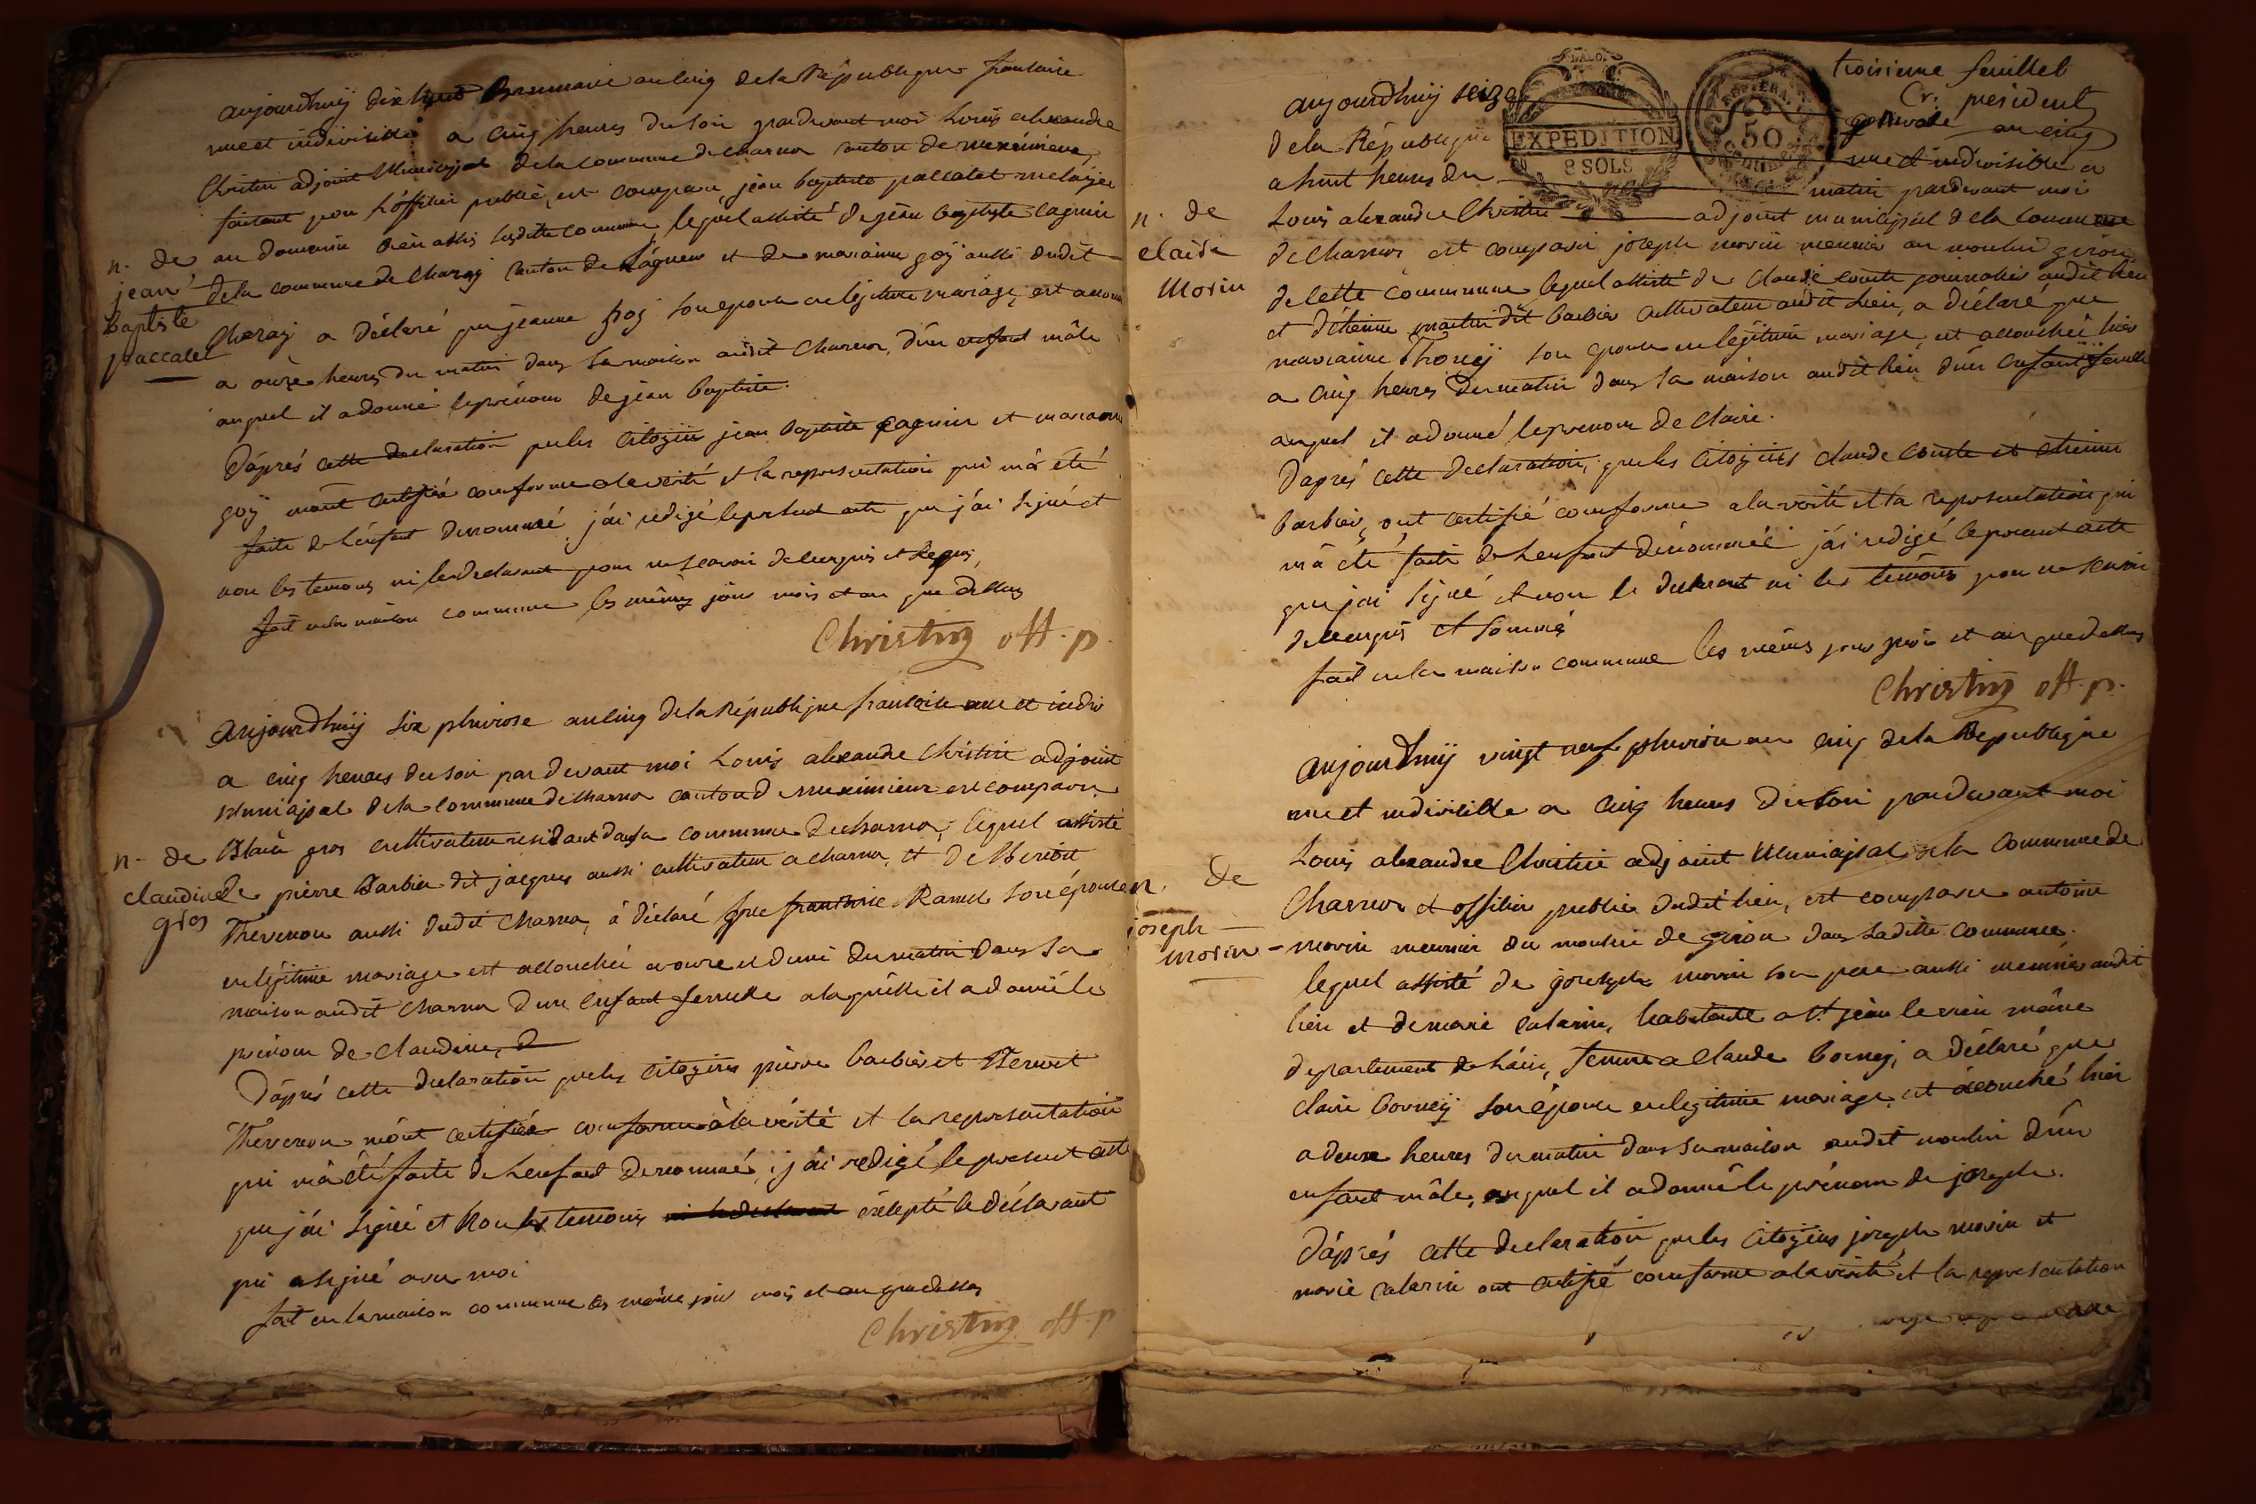 aujourdhuÿ dix huit Brumaire an cinq de la République francaise
une et indivisible a cinq heures du soir pardevant moi Louis alexandre
Christin adjoint Municipal de la Commune de charnoz canton de meximieux
faisant pour L'officier public, est comparu jean baptiste paccalet
au domaine assis susditte commune lequel assisté de jean baptiste cagnin
n. de
jean
baptiste
paccalet
de la commune de Charaÿ canton de Lagneux et de marianne goÿ aussi dudit
Charaÿ a déclaré que jeanne goÿ son epouse en légitime mariage, est accou
a onze heures du matin dans sa maison audit Charnoz, d'un enfant mâle
auquel il a donné le prénom de jean baptiste.
D'aprés cette declaration que les Citoÿens jean baptiste cagnin et marianne
goÿ m'ont certifiée conforme a la verité et la representation qui m'a été
faite de L'enfant denommé j'ai redigé le present acte que j'ai signé et
non les temoins ni le declarant pour ne scavoir de ce requis
fait en la maison commune les mêmes jour mois et an que dessus
Christin off. p.
aujourdhuÿ six pluviose an cinq de la République francaise une et indiv
a cinq heures du soir par devant moi Louis alexandre Christin adjoint
Municipal de la commune de charnoz canton de meximieux est comparu
n. de
claudine
gros
Blain gros cultivateur residant dans la commune de charnoz, lequel assisté
de pierre Barbier dit jacques aussi cultivateur a charnoz et de Benoit
Thevenon aussi dudit Charnoz, à déclaré que francoise Ramel son épouse
en légitime mariage est accouchée a onze et demi du matin dans sa
maison audit Charnoz d'une enfant femelle a laquelle il a donné le
prénom de Claudine,
D'aprés cette declaration que les Citoÿens pierre barbier et Benoit
Thevenon m'ont certifiée conforme à la vérité et la representation
qui m'a été faite de L'enfant denommé, j'ai redigé le present acte
que j'ai signé et Non les temoins excepté le déclarant
qui a signé avec moi
fait en la maison commune les même jour mois et an que dessus
Christin off. p
troisieme feuillet
Cr. president
aujourdhuÿ seize
EXPEDITION
8 SOLS
50
an cinq
de la République
une et indivisible a
a huit heures du
matin pardevant moi
n. de
claire
Morin
Louis alexandre Christin adjoint municipal de la commune
de Charnoz est comparu joseph morin meunier au moulin giron
de cette Commune lequel assisté de Claude comte journalier audit lieu
et d'étienne martin dit barbier cultivateur audit Lieu, a déclaré que
marianne Thoneÿ son epouse en légitime mariage est accouchée hier
a cinq heures du matin dans sa maison audit lieu d'un enfant femelle
auquel il a donné le prenom de Claire.
D'aprés cette Declaration, que les Citoÿens claude comte et etienne
barbier, ont certifié conforme a la verité et la representation qui
m'a eté faite de L'enfant dénommée j'ai redigé le present acte
que j'ai signé et non le declarant ni les temoins pour ne scavoir
de ce requis et sommés
fait en la maison commune les mêmes jour mois et an que dessus
Christin off. p.
aujourdhuÿ vingt neuf pluviose an cinq de la République
une et indivisible a cinq heures du soir pardevant moi
Louis alexandre Christin adjoint Municipal de la Commune de
n. de
joseph
morin
Charnoz et officier public dudit lieu, est comparu antoine
morin meunier du moulin de giron dans Laditte Commune.
lequel assisté de joseph morin son pere aussi meunier audit
lieu et de marie catarin, habitante a St. jean le vieu même
departement de L'ain, femme a Claude borneÿ, a déclaré que
claire borneÿ son épouse en legitime mariage, est accouché hier
a deux heures du matin dans sa maison audit moulin d'un
enfant mâle, auquel il a donné le prénom de joseph.
D'aprés cette declaration que les Citoÿens joseph morin et
marie catarin ont certifié conforme a la verité et la representation